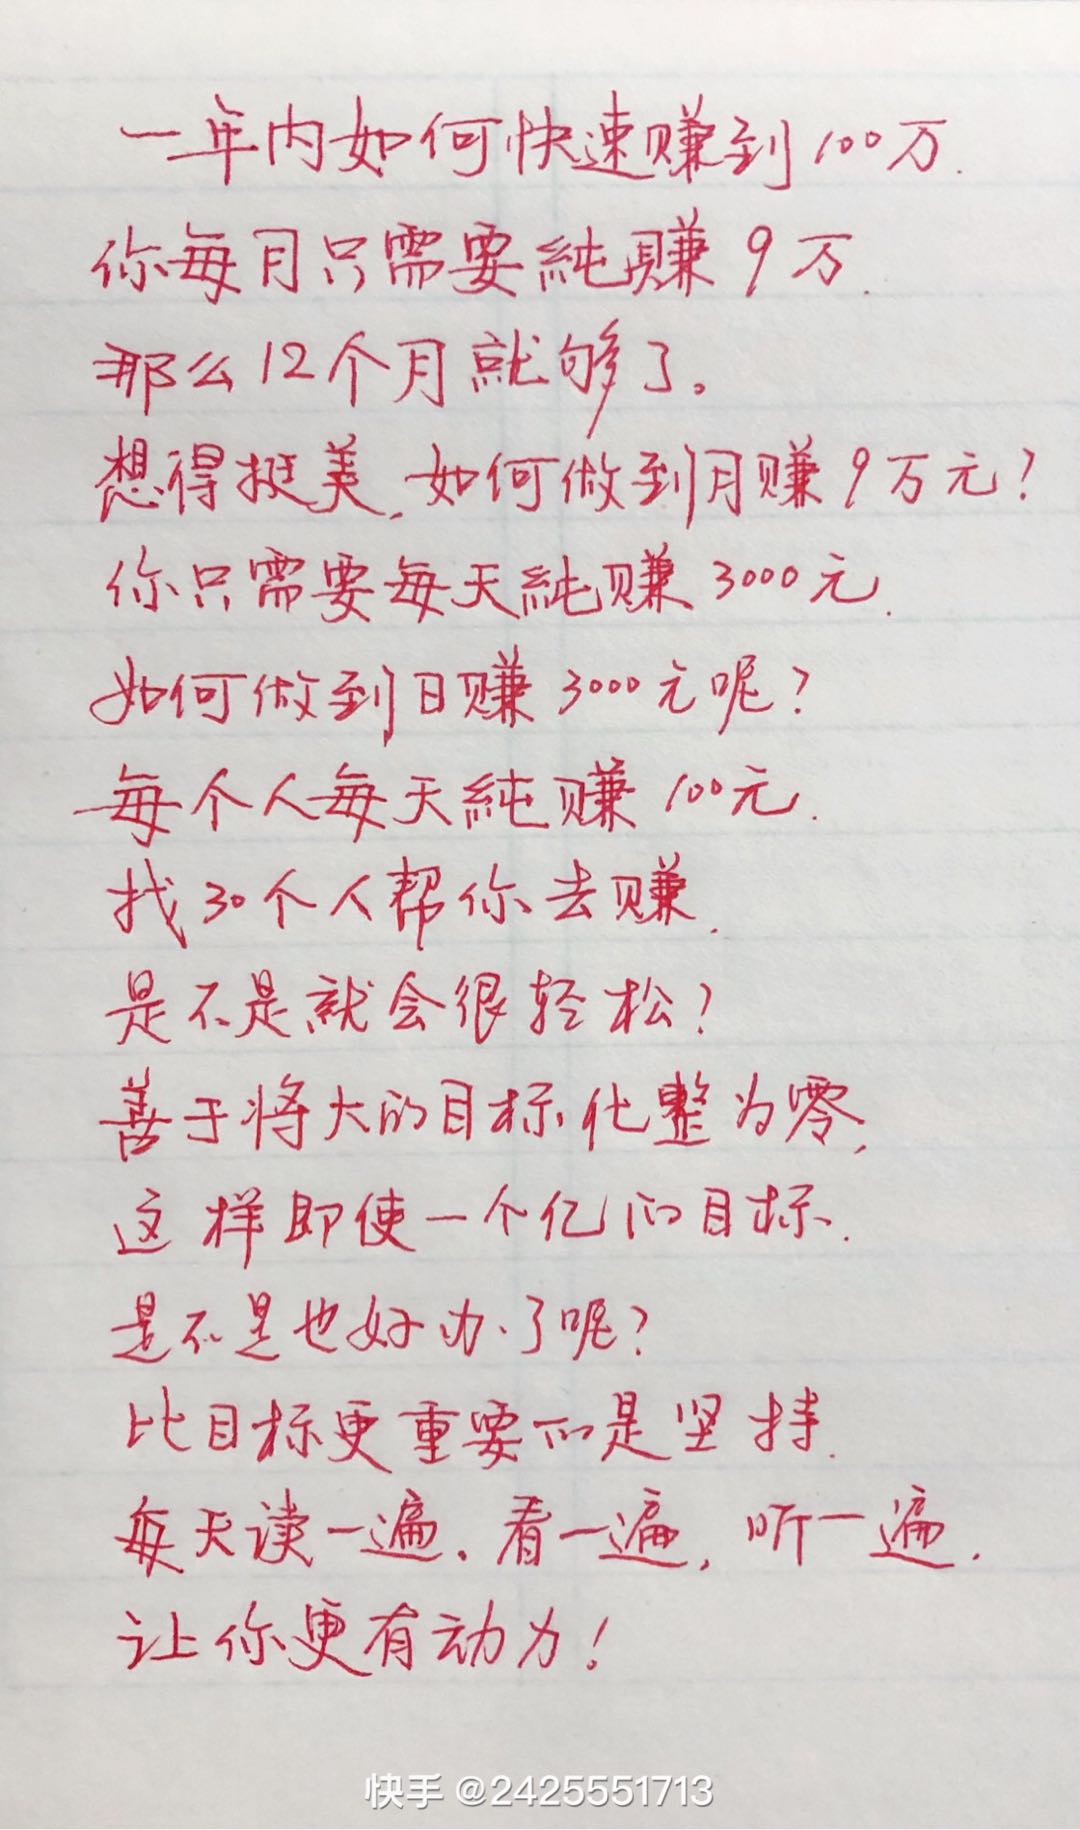 一年内如何快速赚到100万.
你每月只需要純賺9万.
那么12个月就够了。
想得挺美,如何做到月赚9万元?
你只需要每天純赚3000元.
如何做到日赚3000元呢?
每个人每天純赚100元.
找30个人帮你去赚.
是不是就会很轻松?
善于将大的目标化整为零,
这样即使一个亿的目标.
是不是也好办了呢?
比目标更重要的是坚持.
每天读一遍.看一遍,听一遍.
让你更有动力!
快手 @2425551713